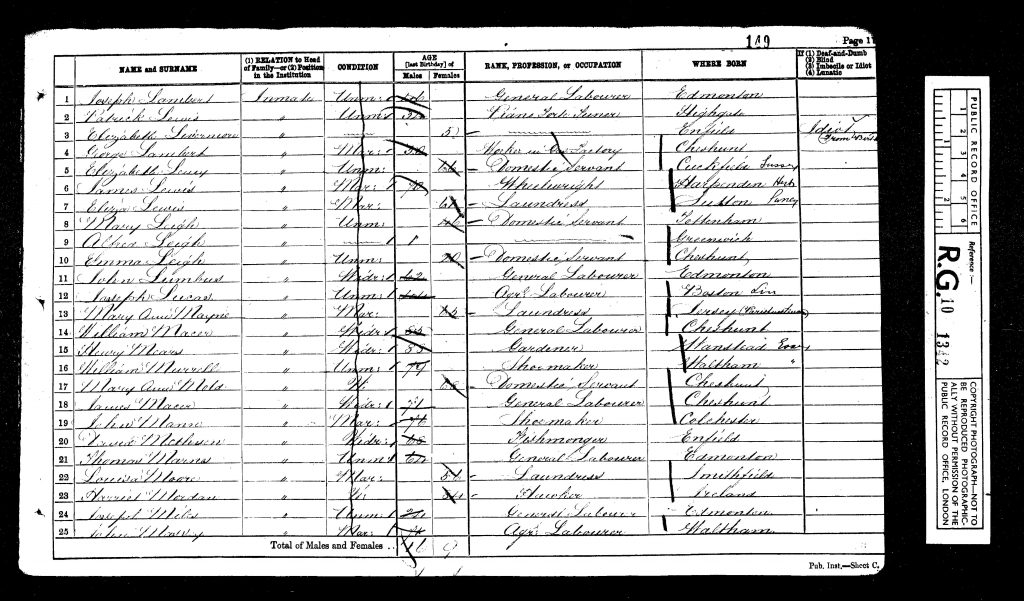 149
Page 1
NAME and SURNAME (1) RELATION to Head of Family—or (2) Position in the Institution CONDITION AGE [last Birthday] of Males Females RANK, PROFESSION, or OCCUPATION WHERE BORN If (1) Deaf-and-Dumb (2) Blind (3) Imbecile or Idiot (4) Lunatic
1 Joseph Lambert Inmate Unm: General Labourer Edmonton
2 Patrick Lewis " Unm Piano Forte Tuner Highgate
3 Elizabeth " 5 Enfield Idiot From
4 George Lambert " Mar: Worker in Factory Cheshunt
5 Elizabeth " Unm: Domestic Servant Cuckfield Sussex
6 James Lewis " Mar: Wheelwright Harpenden Herts
7 Eliza Lewis " Mar: Laundress Sutton
8 Mary Leigh " Unm: Domestic Servant Tottenham
9 Alfred Leigh " 1 Greenwich
10 Emma Leigh " Unm: 20 Domestic Servant Cheshunt
11 John " Widr: 62 General Labourer Edmonton
12 Joseph Lucas " Unm: Agrl Labourer Boston Lin
13 Mary Ann Mayne " Mar: Laundress Jersey
14 William Macer " Widr: General Labourer Cheshunt
15 Henry Mears " Widr: Gardener Wanstead Essex
16 William Murrell " Unm: 79 Shoemaker Waltham "
17 Mary Ann " W: Domestic Servant Cheshunt
18 James Macer " Widr: 71 General Labourer Cheshunt
19 John Mann " Mar: 76 Shoemaker Colchester
20 " Widr: Fishmonger Enfield
21 Thomas " Unm General Labourer Edmonton
22 Louisa Moore " Mar: Laundress Smithfield
23 Harriet " W: Hawker Ireland
24 Joseph Miles " Unm: General Labourer Edmonton
25 John " Mar: Agrl Labourer Waltham
Total of Males and Females .. 16 9
Pub. Inst.—Sheet C.
PUBLIC RECORD OFFICE
1 2 3 4 5 6
1 2
Reference :—
R.G. 10 1342
COPYRIGHT PHOTOGRAPH—NOT TO BE REPRODUCED PHOTOGRAPHICALLY WITHOUT PERMISSION OF THE PUBLIC RECORD OFFICE, LONDON